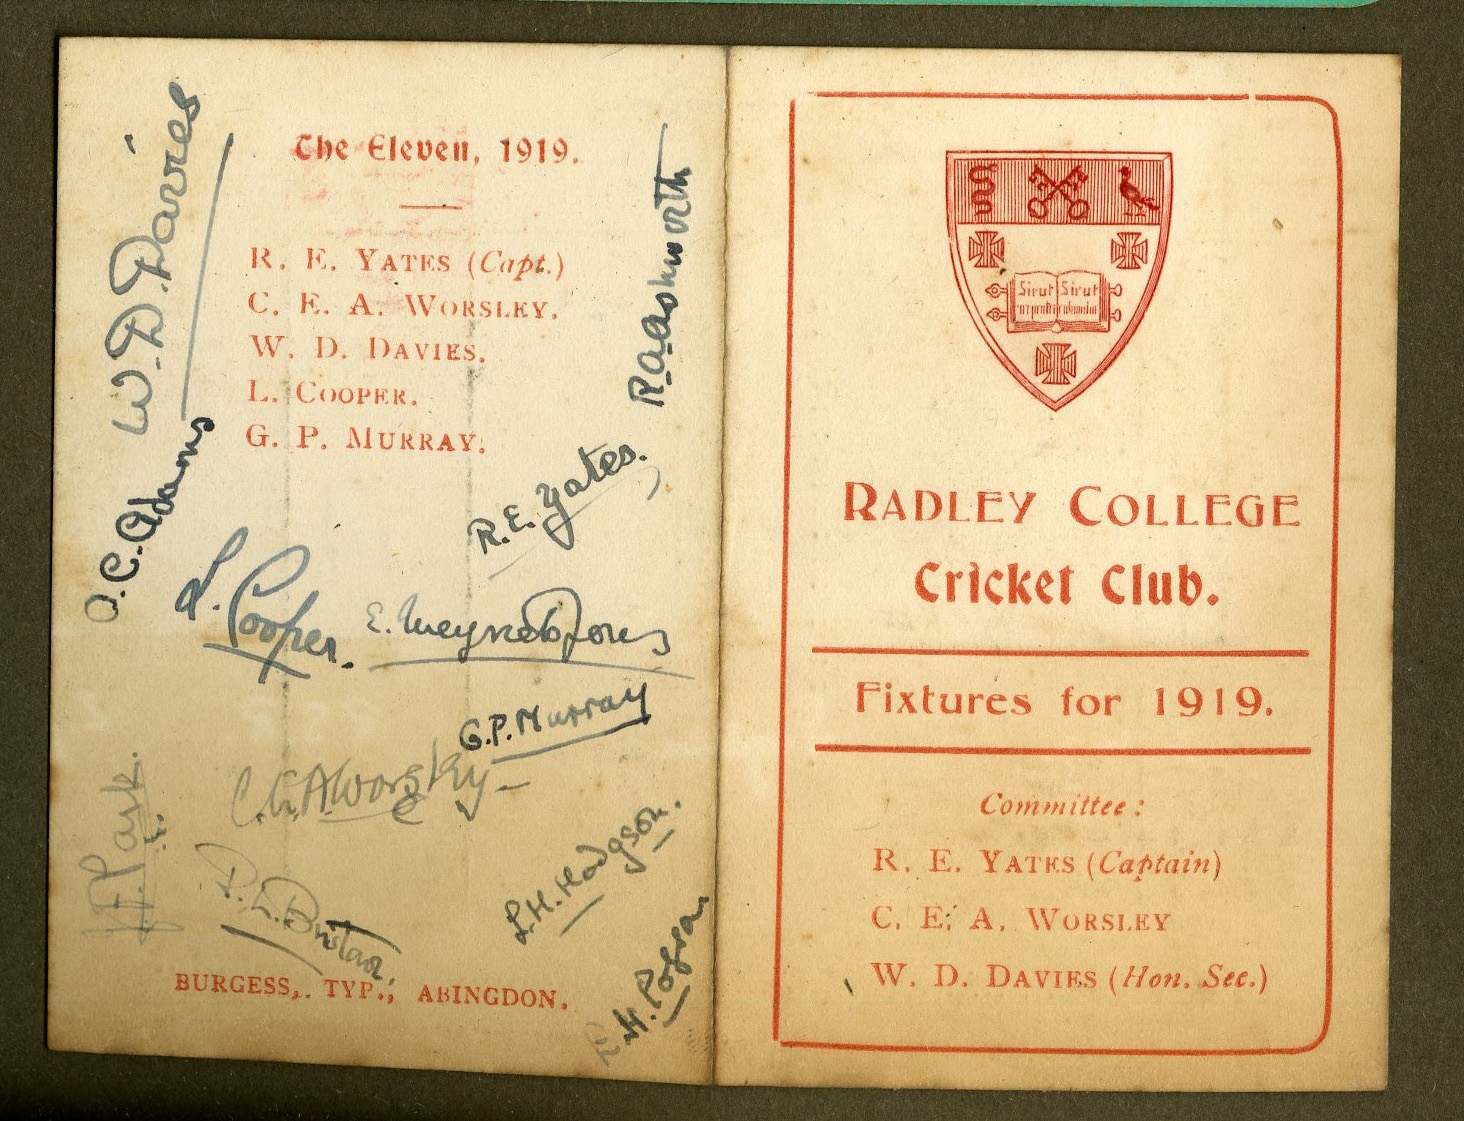 The Eleven, 1919.
R. E. YATES (Capt.)
C. E. A. WORSLEY.
W. D. DAVIES.
L. COOPER.
G. P. MURRAY.
W. D. Davies
R. A. Ashworth
O. C. Adams
R. E. Yates.
L. Cooper.
G. P. Murray
C. E. A Worsley
L. H. Hodgson.
BURGESS, TYP., ABINGDON.
Sicut Sicut
RADLEY COLLEGE
Cricket Club.
Fixtures for 1919.
Committee:
R. E. YATES (Captain)
C. E. A. WORSLEY
W. D. DAVIES (Hon. Sec.)